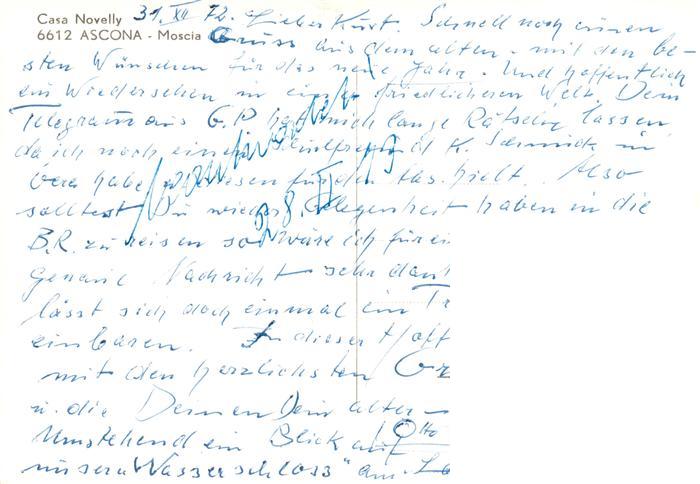 Casa Novelly 31. XII 72. Lieber Kurt. Schnell noch einen
6612 ASCONA - Moscia Gruss aus dem alten - mit den be-
sten Wünschen für das neue Jahr. Und hoffentlich
ein Wiedersehen in einer friedlicheren Welt. Dein
Telegramm aus G.P. hat mich lange Rätseln lassen
da ich noch einen Schulfreund K. Schmidt in
habe diesen für den hielt. Also
solltest Du wieder Gelegenheit haben in die
B.R. zu reisen so wäre ich für ei
genaue Nachricht sehr dan
lässt sich doch einmal ein Tr
einbaren. In dieser Hoff
mit den herzlichsten Gr
u. die Deinen Dein alter
Otto
Umstehend ein Blick auf
unser "Wasserschloss" am L
beantwortet
28. II. 73